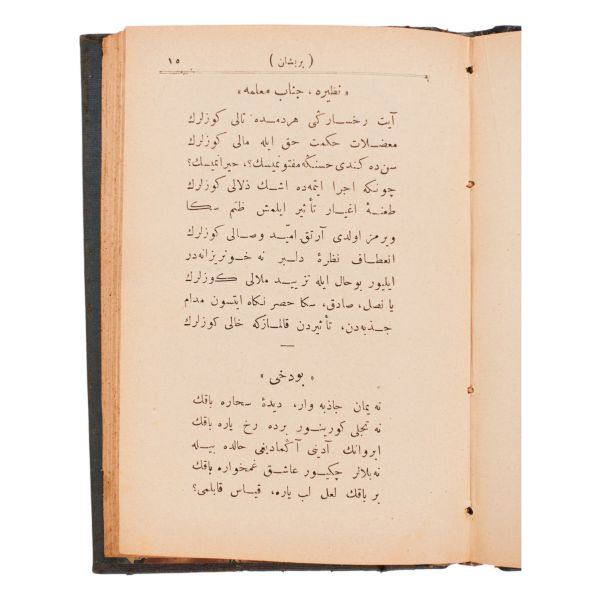 ( پریشان ) ١٥
« نظیره ، جناب معلمه »
آیت رخسارڭی هردمده تالی کوزلرك
معضلات حکمت حق ایله مالی کوزلرك
سن ده کندی حسنڭه مفتونمیسك؟، حیرانمیسك؟
چونکه اجرا ایتمه‌ده اشك ذلالی کوزلرك
طعنهٔ اغیار تأثیر ایلمش ظنم سکا
ویرمز اولدی آرتق امید وصالی کوزلرك
انعطاف نظرهٔ دلبر نه خونریزانه‌در
ایلیور بوحال ایله تزیید ملالی کوزلرك
یا نصل، صادق، سکا حصر نکاه ایتسون مدام
جذبه‌دن، تأثیردن قالمازکه خالی کوزلرك
« بودخی »
نه یمان جاذبه وار، دیدهٔ سحاره باقك
نه تجلی کورینور برده رخ یاره باقك
ابروانك آدینی آڭمادیغی حالده بیله
نه‌بلالر چکیور عاشق غمخواره باقك
بر باقك لعل لب یاره، قیاس قابلمی؟